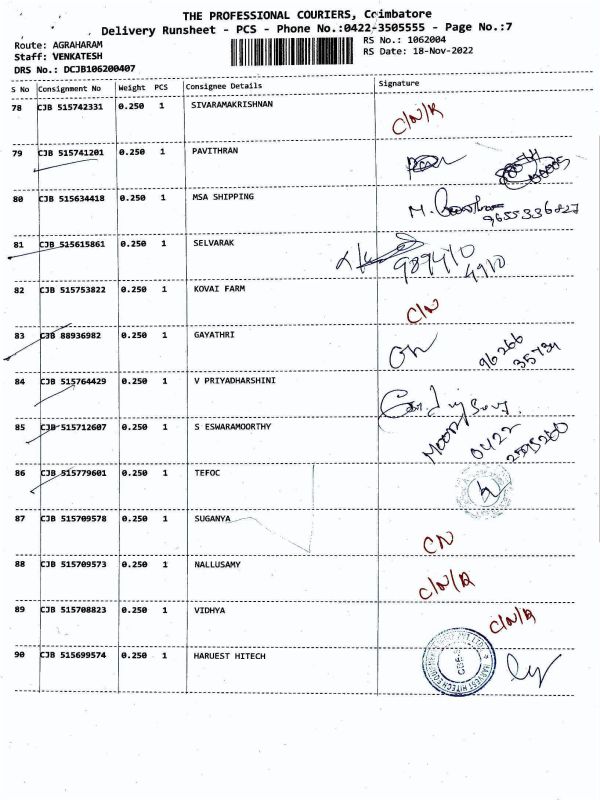 THE PROFESSIONAL COURIERS, Coimbatore
Delivery Runsheet - PCS - Phone No.:0422-3505555 - Page No.:7
Route: AGRAHARAM
RS No.: 1062004
Staff: VENKATESH
RS Date: 18-Nov-2022
DRS No.: DCJB106200407
S No Consignment No Weight PCS Consignee Details Signature
78 CJB 515742331 0.250 1 SIVARAMAKRISHNAN C/N/R
79 CJB 515741201 0.250 1 PAVITHRAN
80 CJB 515634418 0.250 1 MSA SHIPPING M.
9655336827
81 CJB 515615861 0.250 1 SELVARAK 989410
4910
82 CJB 515753822 0.250 1 KOVAI FARM C/N
83 CJB 88936982 0.250 1 GAYATHRI 96266
35734
84 CJB 515764429 0.250 1 V PRIYADHARSHINI
85 CJB 515712607 0.250 1 S ESWARAMOORTHY Moorthy 0422
2595260
86 CJB 515779601 0.250 1 TEFOC
87 CJB 515709578 0.250 1 SUGANYA CN
88 CJB 515709573 0.250 1 NALLUSAMY C/N/R
89 CJB 515708823 0.250 1 VIDHYA C/N/R
90 CJB 515699574 0.250 1 HARUEST HITECH